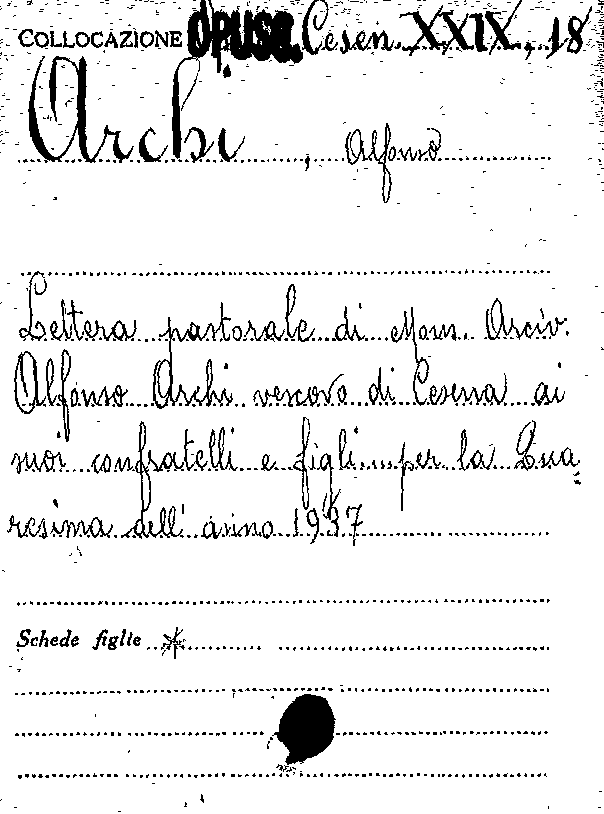 COLLOCAZIONE OPUSC. Cesen. XXIX, 18
Archi, Alfonso
Lettera pastorale di Mons. Arciv.
Alfonso Archi vescovo di Cesena ai
suoi confratelli e figli... per la Qua=
resima dell' anno 1937
Schede figlie *